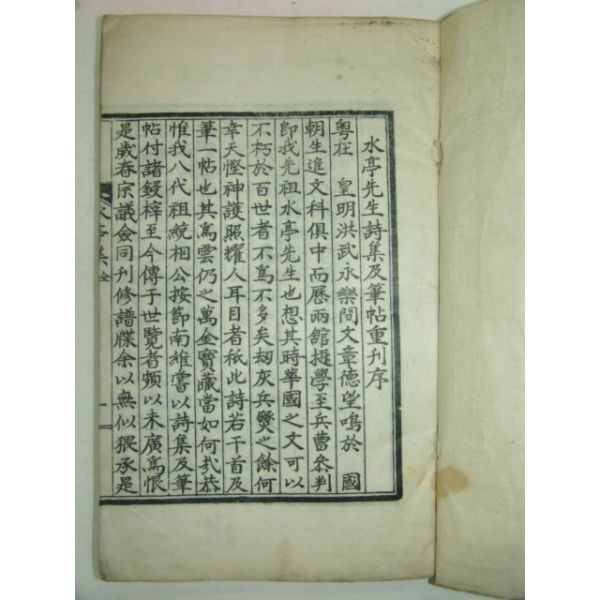 水亭先生詩集及筆帖重刊序
粤在　皇明洪武永樂間文章德望鳴於　國
朝生進文科俱中而歷兩館提學至兵曹參判
卽我先祖水亭先生也想其時華國之文可以
不朽於百世者不爲不多矣刼灰兵燹之餘何
幸天慳神護照耀人耳目者秪此詩若干首及
筆一帖也其爲雲仍之萬金寶藏當如何㢤恭
惟我八代祖統相公按節南維嘗以詩集及筆
帖付諸鋟梓至今傳于世覽者頗以未廣爲恨
是歲春宗議僉同刊修譜牒余以無似猥承是
水亭集全